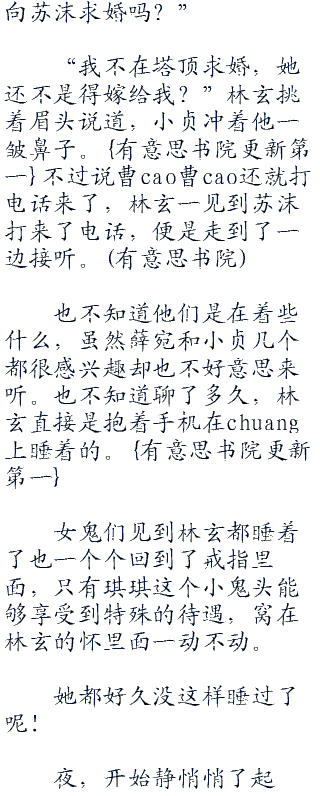 向苏沫求婚吗？”
“我不在塔顶求婚，她
还不是得嫁给我？”林玄挑
着眉头说道，小贞冲着他一
皱鼻子。{有意思书院更新第
一}不过说曹cao曹cao还就打
电话来了，林玄一见到苏沫
打来了电话，便是走到了一
边接听。(有意思书院)
也不知道他们是在着些
什么，虽然薛宛和小贞几个
都很感兴趣却也不好意思来
听。也不知道聊了多久，林
玄直接是抱着手机在chuang
上睡着的。{有意思书院更新
第一}
女鬼们见到林玄都睡着
了也一个个回到了戒指里
面，只有琪琪这个小鬼头能
够享受到特殊的待遇，窝在
林玄的怀里面一动不动。
她都好久没这样睡过了
呢！
夜，开始静悄悄了起